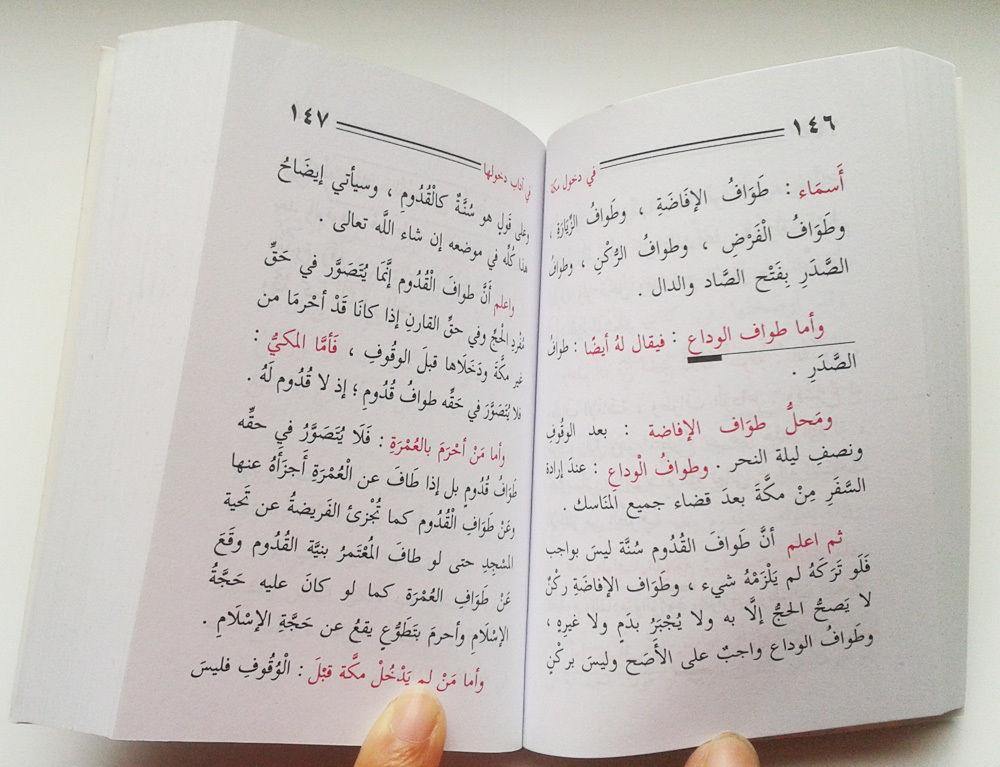 ١٤٦
في دخول مكة
أَسمَاء : طَوَافُ الإفَاضَةِ ، وطَوَافُ الزِّيَارَةِ ،
وطَوَافُ الْفَرْضِ ، وطوافُ الرُّكْنِ ، وطوافُ
الصَّدَرِ بِفَتْح الصَّاد والدال .
وأما طواف الوداعِ : فيقال لهُ أيضًا : طوافُ
الصَّدَرِ .
ومَحلُّ طوَاف الإفاضة : بعد الوقُوفِ
ونصفِ ليلة النحر . وطوافُ الْوداعِ : عندَ إرادة
السَّفَرِ مِنْ مكَّةَ بعدَ قضاء جميع المَنَاسك .
ثم اعلم أنَّ طوَافَ القُدُوم سُنَّة ليسَ بواجب
فَلَو تَرَكَهُ لم يَلْزَمْهُ شيء ، وطَوَاف الإفاضَةِ ركْنٌ
لا يَصحُّ الحجُّ إلَّا به ولا يُجْبَرُ بدَمٍ ولا غيرِهِ ،
وطَوافُ الوداع واجبٌ على الأصَح وليسَ بركْنٍ
١٤٧
في آداب دخولها
وعلى قَولٍ هو سُنَّةٌ كالْقُدُومِ ، وسيأتي إيضَاحُ
هذا كُلِّه في موضعه إن شاء اللَّه تعالى .
واعلم أَنَّ طوافَ الْقُدُوم إنَّمَا يُتَصَوَّر في حَقِّ
مُفْرِدِ الحَجِّ وفي حقِّ القارنِ إذا كانَا قَدْ أحْرمَا من
غير مكَّةَ ودَخَلَاها قبلَ الوقُوفِ ، فَأمَّا المكيُّ :
فلا يُتَصَوَّرَ في حَقِّه طوافُ قُدُومٍ ؛ إذ لا قُدُوم لَهُ .
وأما مَنْ أحْرَمَ بالعُمْرَةِ : فَلَا يُتَصَوَّرُ في حقِّه
طَوَافُ قُدُومٍ بل إذا طَافَ عن الْعُمْرَةِ أَجزَأَهُ عنها
وعَنْ طَوَافِ الْقُدُوم كما تُجْزئ الفَريضةُ عن تَحية
المسْجِدِ حتى لو طافَ المُعْتَمرُ بنيَّة القُدُوم وقَعَ
عَنْ طَوَافِ العُمْرَة كما لو كانَ عليه حَجَّةُ
الإسْلَامِ وأحرمَ بتَطَوُّعٍ يقعُ عن حَجَّةِ الإسْلَامِ .
وأما مَنْ لم يَدْخُلْ مكة قَبْلَ : الْوُقُوفِ فليسَ